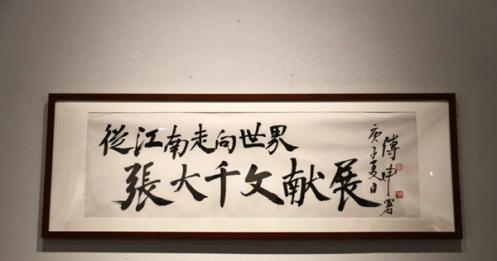 從江南走向世界
張大千文献展
庚子夏日
傅申署